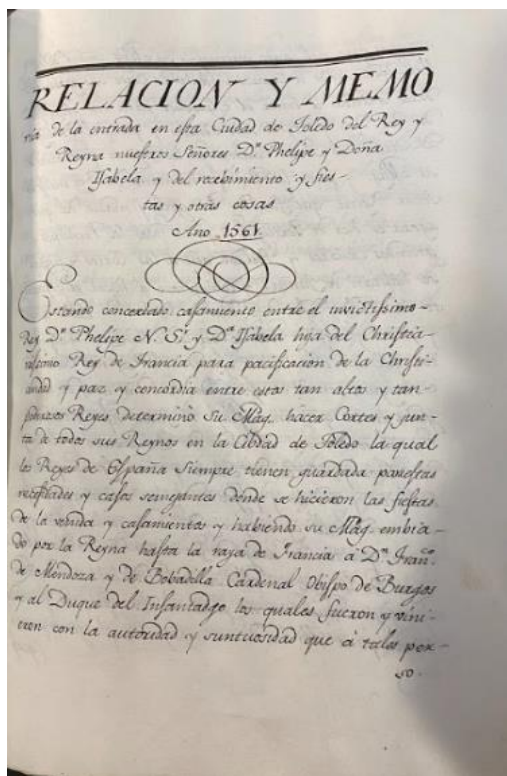 RELACION Y MEMO
ria de la entrada en esta Ciudad de Toledo del Rey y
Reyna nuestros Señores Dn. Phelipe y Doña
Isabela y del recebimiento y fies-
tas y otras cosas
Año 1561.
Estando concertado casamiento entre el invictissimo-
Rey Dn. Phelipe N. Sr. y Da. Isabela hija del Christia-
nissimo Rey de Francia para pacificacion de la Christi-
andad y paz y concordia entre estos tan altos y tan-
poderosos Reyes determinó Su Mag. hacer Cortes y jun-
ta de todos sus Reynos en la Ciudad de Toledo la qual
los Reyes de España siempre tienen guardada para estas
necesidades y casos semejantes donde se hicieron las fiestas
de la venida y casamientos y habiendo su Mag. embia-
do por la Reyna hasta la raya de Francia á Dn. Franco.
de Mendoza y de Bobadilla Cardenal Obispo de Burgos
y al Duque del Infantadgo los quales fueron y vini-
eron con la autoridad y suntuosidad que á tales per-
so-